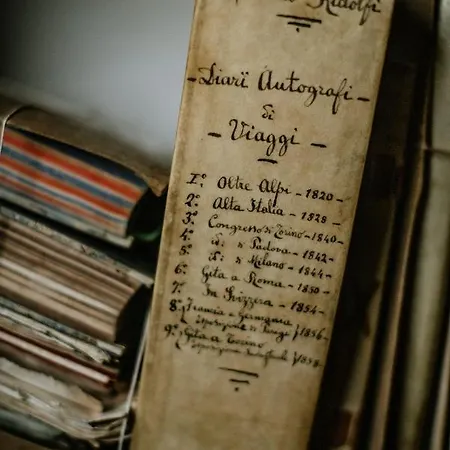 Ridolfi
- Diarï Autografi -
di
- Viaggi -
1.° Oltre Alpi - 1820 -
2.° Alta Italia - 1828 -
3.° Congresso di Torino - 1840 -
4.° id: di Padova - 1842 -
5.° id: di Milano - 1844 -
6.° Gita a Roma - 1850 -
7.° In Svizzera - 1854 -
8.° Francia e Germania
Esposizione di Parigi 1856 -
9.° Gita a Torino
Esposizione 1858 -